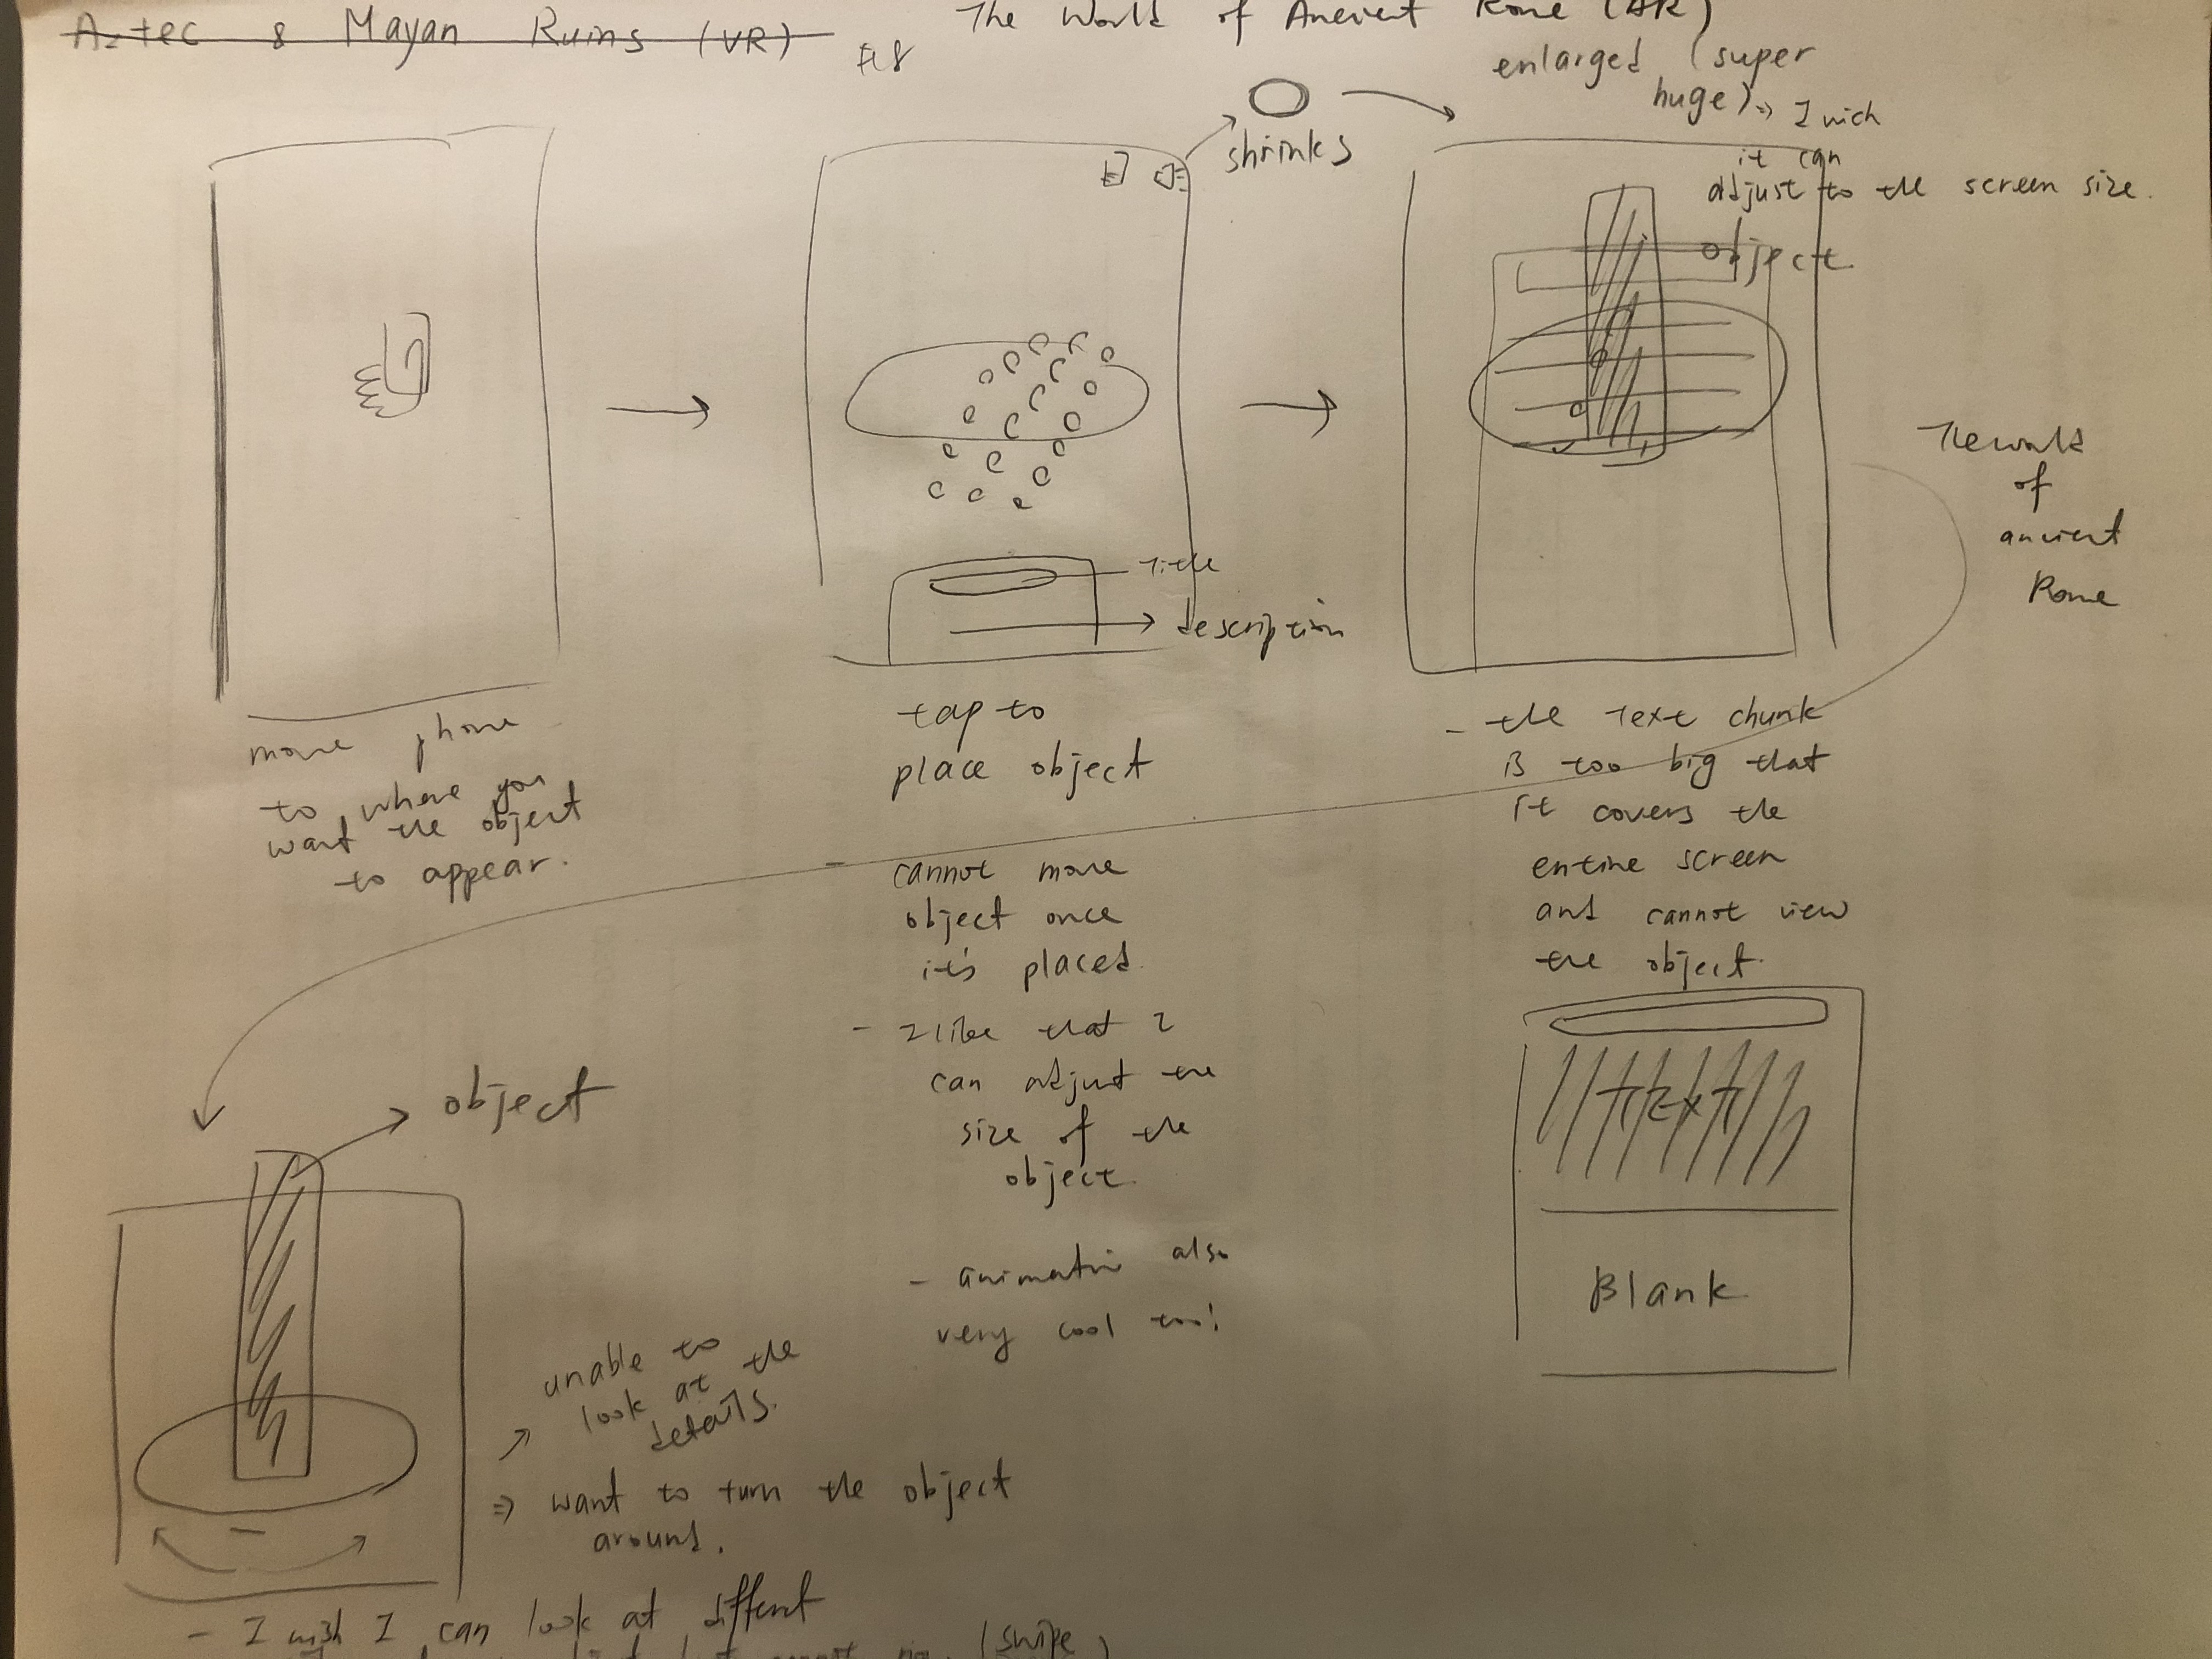 Aztec & Mayan Ruins (VR)
The World of Ancient Rome (AR)
enlarged (super
huge) => I wich
it can
adjust to the screen size.
shrinks
object
The world
of
ancient
Rome
Title
description
move phone
to where you
want the object
to appear.
tap to
place object
- cannot move
object once
it's placed.
- I like that I
can adjust the
size of the
object.
- animation also
very cool too!
- the text chunk
is too big that
it covers the
entire screen
and cannot view
the object.
Text
Blank
object
unable to
look at the
details.
=> want to turn the object
around.
- I wish I can look at different
(swipe)